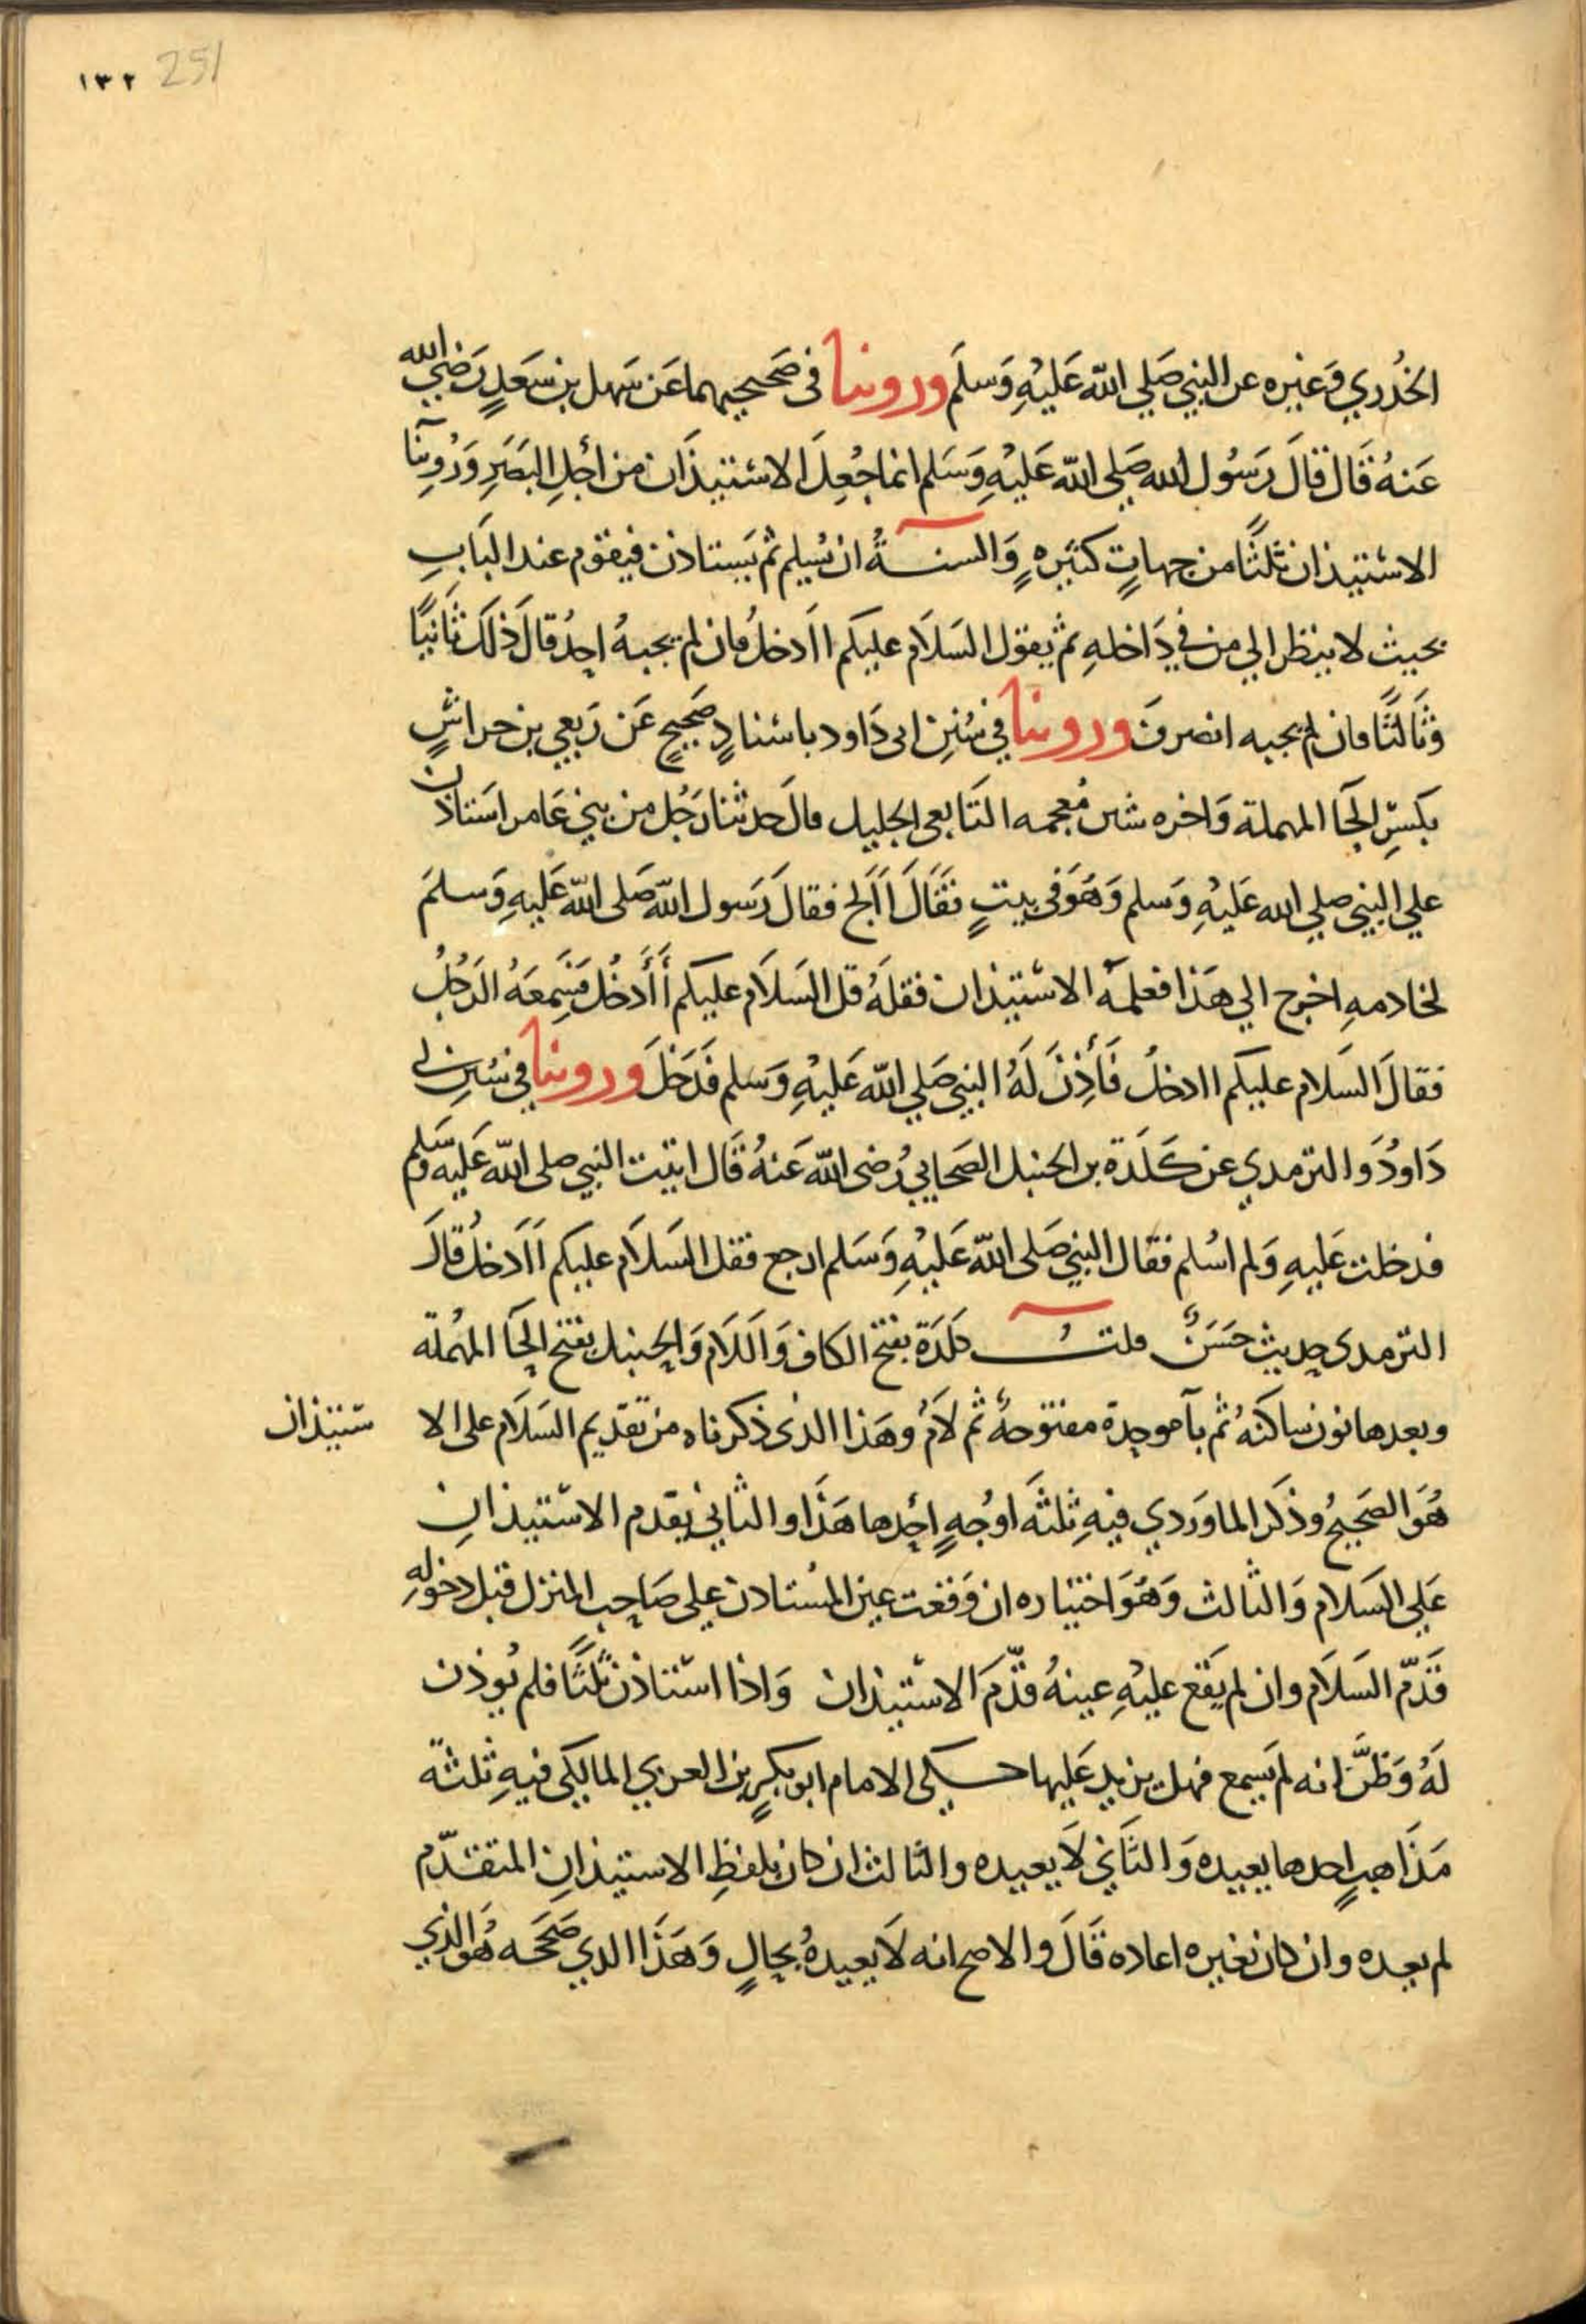 ١٣٢ 251
الخُدْري وَغيره عن النبي صَلي اللّه عَليْهِ وَسلم وروينا في صَحيحيهما عَن سَهل بن سَعَدٍ رَضي الله
عَنهُ قَال قالَ رَسُول الله صَلى اللّه عَليْهِ وَسَلم انما جُعِلَ الاسْتيذَان من اجْلِ البَصَرِ وَرُوِينَا
الاسْتيذان ثلثًا من جهاتٍ كثيرهٍ وَالسنةُ ان يُسلِم ثم يَستاذن فيقوم عند البَابِ
بحيث لا ينظر الي من في دَاخلهِ ثم يقول السَلاَم عليكم ااَدخلُ فان لم يجبهُ احدٌ قالَ ذلكَ ثَانيًا
وَثَالثًا فان لم يجبه انصرفَ وروينا في سُنِن ابي دَاود باسْنادٍ صَحيحٍ عَن رَبعي بن حراشٍ
بكَسِّر الحَآ المهملة وَاخره شين مُعجمه التَابعي الجليل قالَ حدثنا رَجُل من بني عَامر استاذن
علي النبي صلي الله عَليْهِ وَسلم وَهَوَ في بيتٍ فقَالَ اَاَلج فقالَ رَسول اللّه صَلى اللّه عَليهِ وَسلمَ
لخادمهِ اخرج الي هَذا فعلمْهُ الاسْتيذان فقلَهُ قل السَلاَم عليكم أَأَدخُل فسَمِعَهُ الرَجُلُ
فقالَ السَلام عليكم اادخلُ فَأَذِنَ لَهُ النبي صَلي اللّه عَليْهِ وَسلم فَدَخلَ وروينا في سُنن ابي
دَاودُ وَالترمدي عن كَلَدَة بن الحنبل الصَحابي رُضي اللّه عَنهُ قَال اتيت النبي صلى اللّه عَليه وَسَلم
فدخلت عَليهِ وَلم اسُلم فقال النبي صَلى اللّه عَليْهِ وَسَلم ارجع فقل السَلاَم عليكم ااَدخلُ قالَ
الترمدي حديث حَسَنٌ قلتُ كلَدَة بفتح الكاف وَاللاَم وَالحنبل بفتح الحَآ المهُملة
وبعدها نون ساكنهُ ثم بآ موحدة مفتوحهُ ثم لاَمُ وهَذا الذي ذكرناه من تقديم السَلاَم على الا ستيذان
هُوَ الصَحيحُ وذكَر الماوَردي فيهِ ثِلثَه اوجُهٍ احدها هَذَا والثاني يقدم الاسْتيذانِ
عَلي السَلام وَالثالث وَهَوَ اختياره ان وَقعت عين المسُتاذن علي صَاحب المنزل قبل دخولهِ
قَدّم السَلاَم وان لم يَقع عليهِ عينهُ قدّمَ الاسْتيذان وَاذا اسْتاذن ثلثًا فلم يُوذن
لَهُ وَظَنّ انه لم يَسمع فهل يزيد عَليها حكي الامام ابو بكرٍ بن العربي المالكي فيهِ ثِلثهّ
مَذَاهبٍ احدها يعيده وَالثَاني لاَ يعيده والثالث ان كان بلفظِ الاستيذانِ المتقدّم
لم يعده وان كان بغيره اعاده قَالَ والاصح انه لاَ يعيدهُ بحالٍ وَهَذَا الدي صَححَه هُوَ الذي